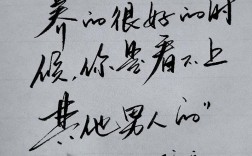 养的很好的时
候,你是看不上
其他男人的"